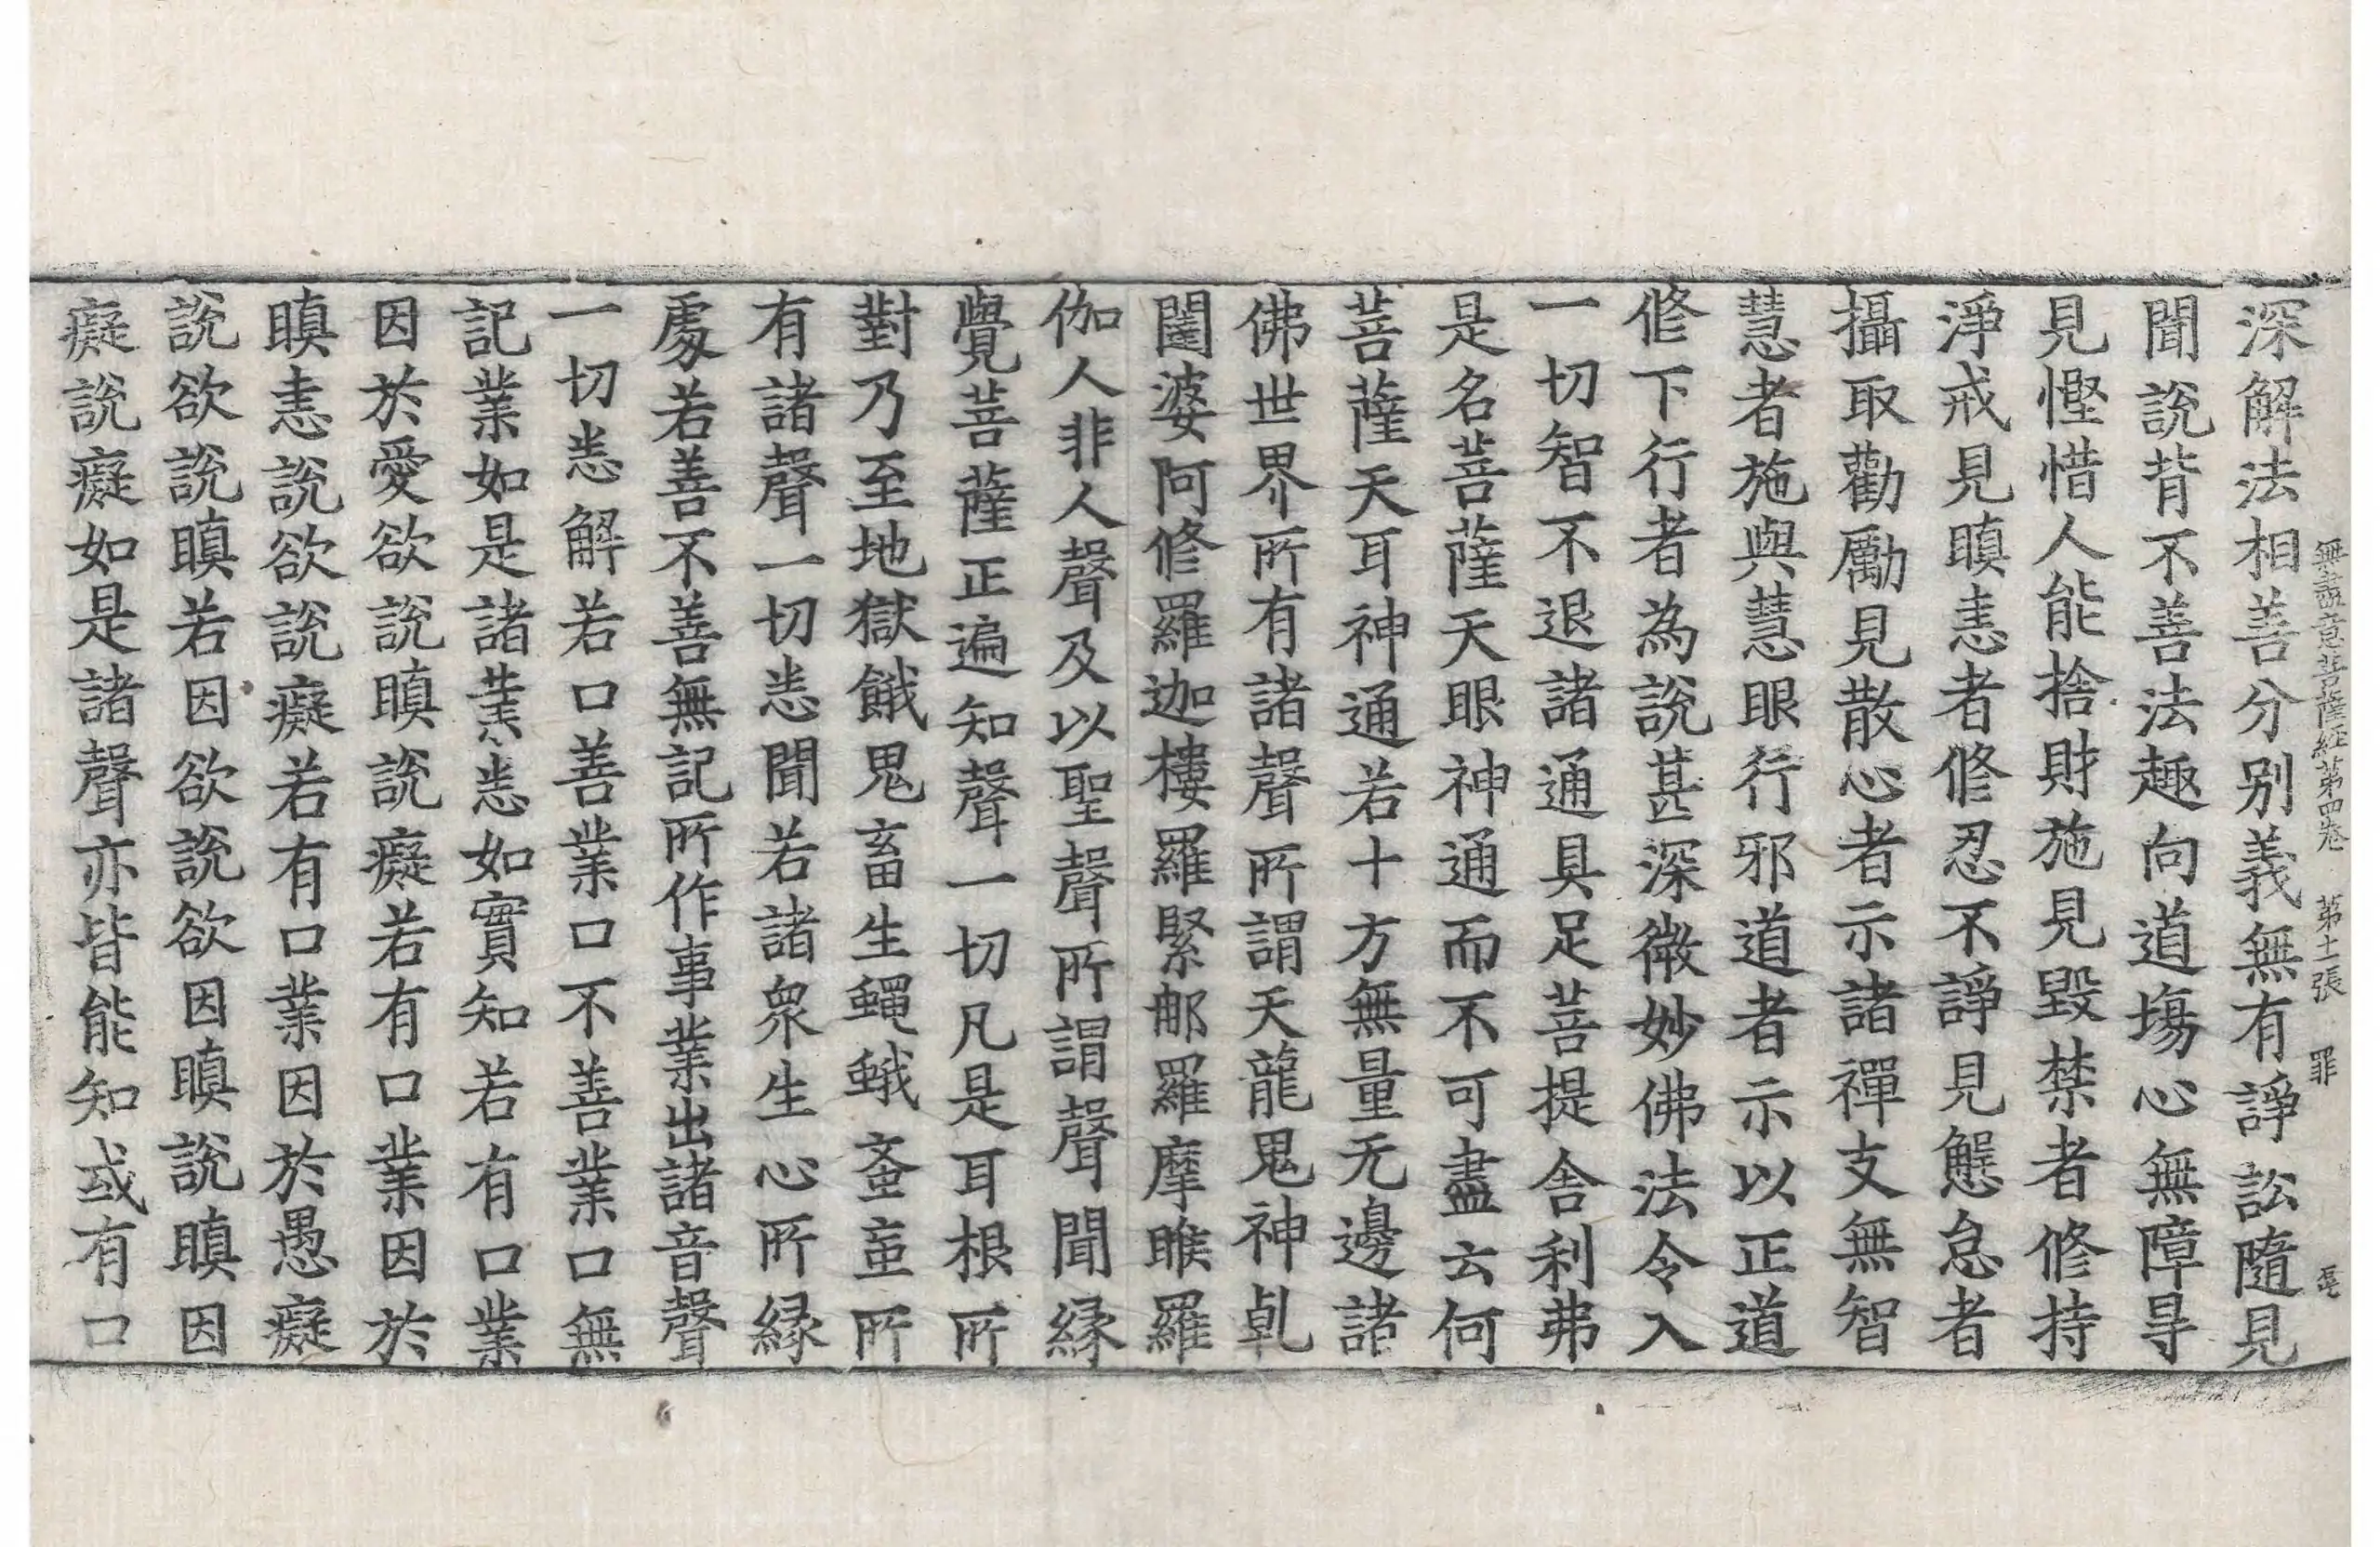 無盡意菩薩経第四卷 第十二張 罪
深解法相善分别義無有諍訟隨見
聞說背不善法趣向道塲心無障㝵
見慳惜人能捨財施見毀禁者修持
淨戒見瞋恚者修忍不諍見懈怠者
攝取勸勵見散心者示諸禪支無智
慧者施與慧眼行邪道者示以正道
修下行者為說甚深微妙佛法令入
一切智不退諸通具足菩提舍利弗
是名菩薩天眼神通而不可盡云何
菩薩天耳神通若十方無量无邊諸
佛世界所有諸聲所謂天龍鬼神乹
闥婆阿修羅迦樓羅緊那羅摩睺羅
伽人非人聲及以聖聲所謂聲聞縁
覺菩薩正遍知聲一切凡是耳根所
對乃至地獄餓鬼畜生蠅蛾蚉䖟所
有諸聲一切悉聞若諸衆生心所縁
處若善不善無記所作事業出諸音聲
一切悉解若口善業口不善業口無
記業如是諸業悉如實知若有口業
因於愛欲說瞋說癡若有口業因於
瞋恚說欲說癡若有口業因於愚癡
說欲說瞋若因欲說欲因瞋說瞋因
癡說癡如是諸聲亦皆能知或有口